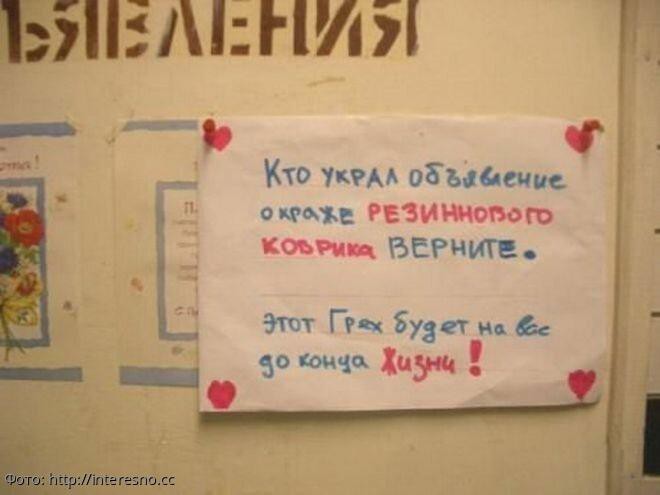 ЪЯВЛЕНИЯ
Кто украл объявление
о краже РЕЗИННОВОГО
КОВРИКА ВЕРНИТЕ.
Этот Грех будет на вас
до конца Жизни!
Фото: http://interesno.cc